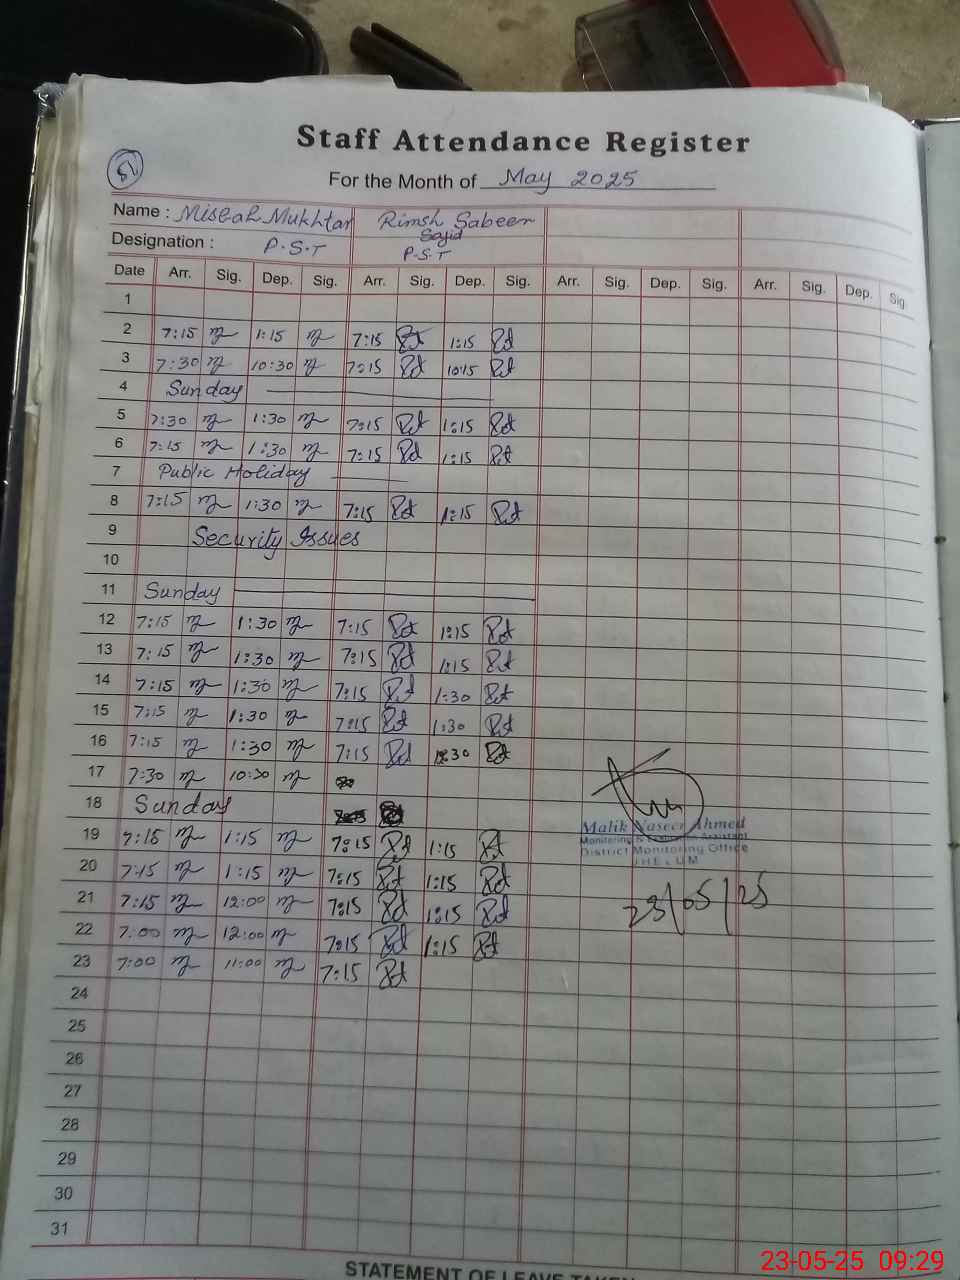 Staff Attendance Register
For the Month of May 2025
Name : Misbah Mukhtar Rimsh Sabeer
Sajid
Designation : P.S.T P.S.T
Date Arr. Sig. Dep. Sig. Arr. Sig. Dep. Sig. Arr. Sig. Dep. Sig. Arr. Sig. Dep. Sig.
1
2 7:15 1:15 7:15 1:15
3 7:30 10:30 7:15 10:15
4 Sunday
5 7:30 1:30 7:15 1:15
6 7:15 1:30 7:15 1:15
7 Public Holiday
8 7:15 1:30 7:15 1:15
9 Security Issues
10
11 Sunday
12 7:15 1:30 7:15 1:15
13 7:15 1:30 7:15 1:15
14 7:15 1:30 7:15 1:30
15 7:15 1:30 7:15 1:30
16 7:15 1:30 7:15 1:30
17 7:30 10:30
18 Sunday
19 7:15 1:15 7:15 1:15
20 7:15 1:15 7:15 1:15
21 7:15 12:00 7:15 1:15
22 7:00 12:00 7:15 1:15
23 7:00 11:00 7:15
24
25
26
27
28
29
30
31
Malik Naseer Ahmed
Monitoring & Assistant
District Monitoring Office
JHELUM
23/05/25
STATEMENT OF LEAVE TAKEN
23-05-25 09:29